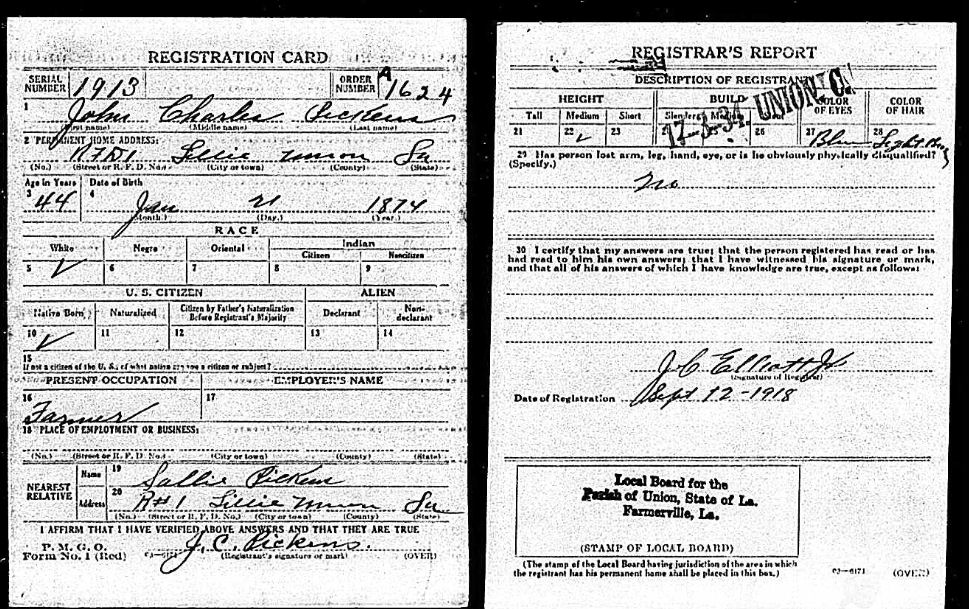 REGISTRATION CARD
SERIAL NUMBER 1913 ORDER NUMBER A 1624
1 John Charles Pickens
(First name) (Middle name) (Last name)
2 PERMANENT HOME ADDRESS:
RFD1 Lillie Union La
(No.) (Street or R. F. D. No.) (City or town) (County) (State)
Age in Years Date of Birth
3 44 4 Jan 21 1874
(Month.) (Day.) (Year.)
RACE
White Negro Oriental Indian
Citizen Noncitizen
5 ✓ 6 7 8 9
U. S. CITIZEN ALIEN
Native Born Naturalized Citizen by Father's Naturalization Before Registrant's Majority Declarant Non-declarant
10 ✓ 11 12 13 14
15
If not a citizen of the U. S., of what nation are you a citizen or subject?
PRESENT OCCUPATION EMPLOYER'S NAME
16 Farmer 17
18 PLACE OF EMPLOYMENT OR BUSINESS:
(No.) (Street or R. F. D. No.) (City or town) (County) (State)
NEAREST RELATIVE Name 19 Sallie Pickens
Address 20 R#1 Lillie Union La
(No.) (Street or R. F. D. No.) (City or town) (County) (State)
I AFFIRM THAT I HAVE VERIFIED ABOVE ANSWERS AND THAT THEY ARE TRUE
P. M. G. O.
Form No. 1 (Red) 03-6171 J. C. Pickens
(Registrant's signature or mark) (OVER)
REGISTRAR'S REPORT
17-3-34. UNION. C.
DESCRIPTION OF REGISTRANT
HEIGHT BUILD COLOR OF EYES COLOR OF HAIR
Tall Medium Short Slender Medium
21 22 ✓ 23 26 27 Blue 28 Light
29 Has person lost arm, leg, hand, eye, or is he obviously physically disqualified?
(Specify.)
No
30 I certify that my answers are true; that the person registered has read or has
had read to him his own answers; that I have witnessed his signature or mark,
and that all of his answers of which I have knowledge are true, except as follows:
J. C. Elliott Jr
(Signature of Registrar)
Date of Registration Sept 12-1918
Local Board for the
Parish of Union, State of La.
Farmerville, La.
(STAMP OF LOCAL BOARD)
(The stamp of the Local Board having jurisdiction of the area in which
the registrant has his permanent home shall be placed in this box.)
03-6171 (OVER)